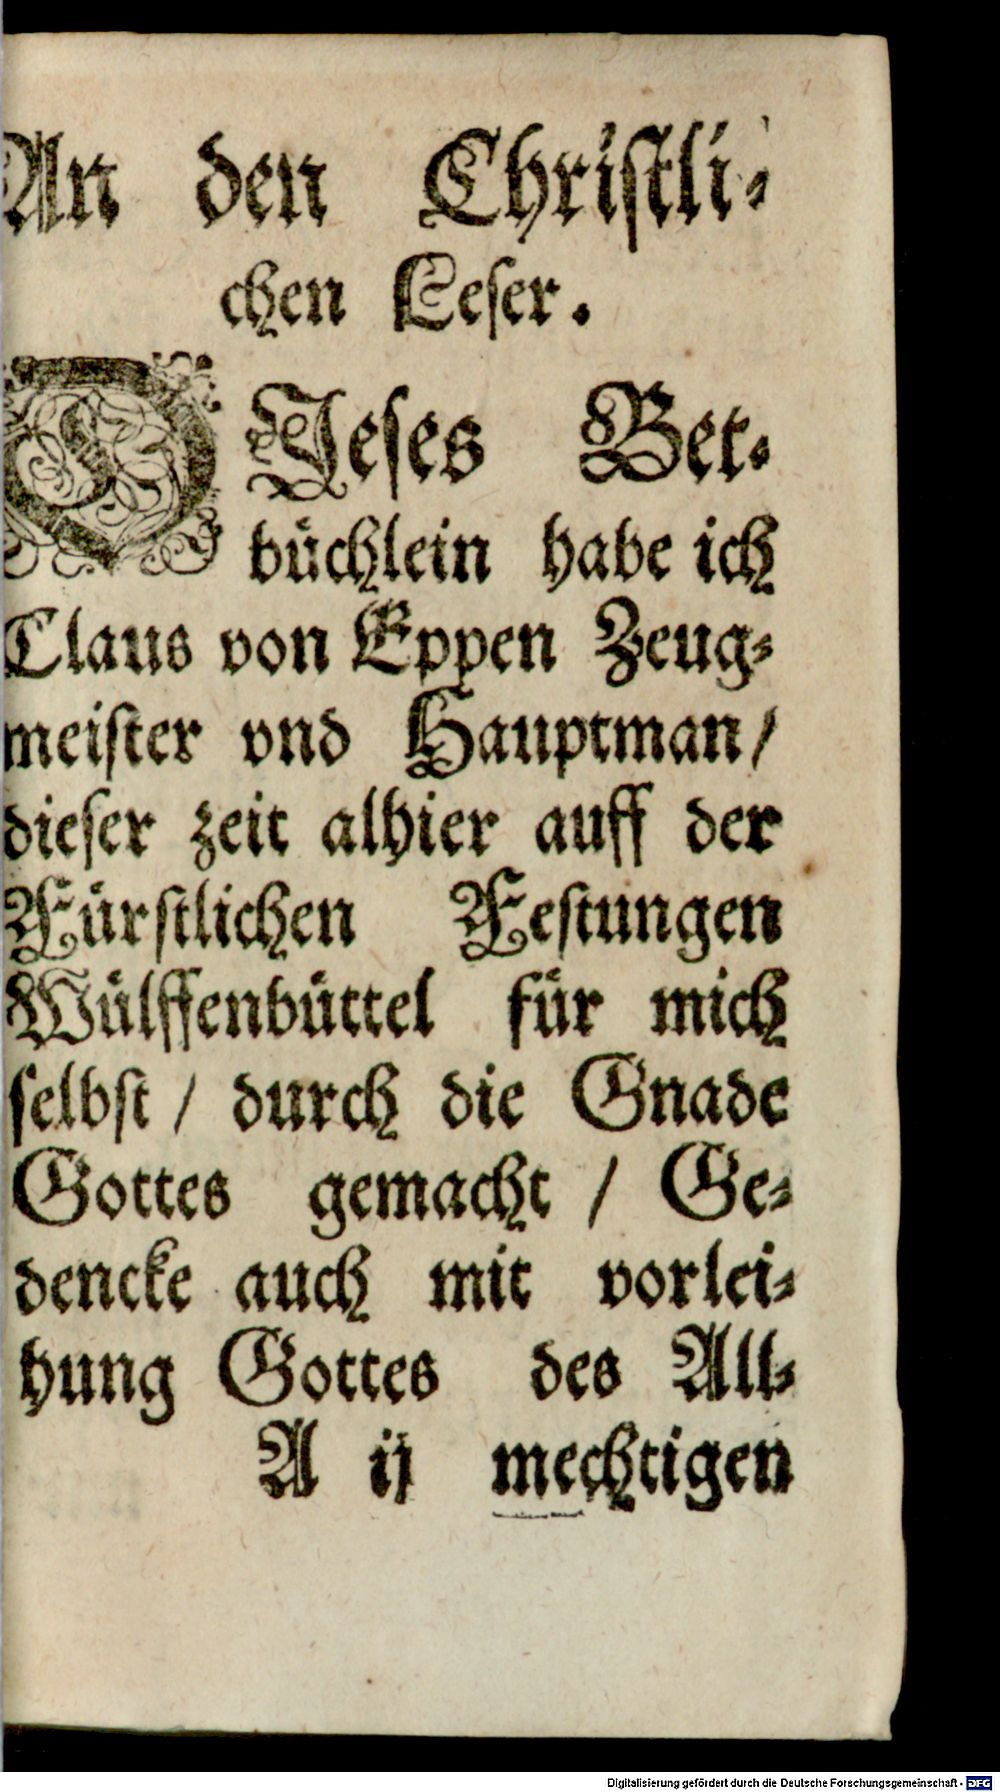 An den Christli⸗
chen Leser.
DIeses Bet⸗
büchlein habe ich
Claus von Eppen Zeug⸗
meister vnd Hauptman/
dieser zeit alhier auff der
Fürstlichen Festungen
Wülffenbüttel für mich
selbst / durch die Gnade
Gottes gemacht / Ge⸗
dencke auch mit vorlei⸗
hung Gottes des All⸗
A ij mechtigen
Digitalisierung gefördert durch die Deutsche Forschungsgemeinschaft - DFG